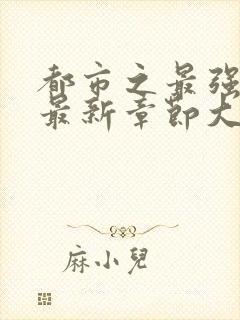 都市之最强
最新章节大
麻小兒